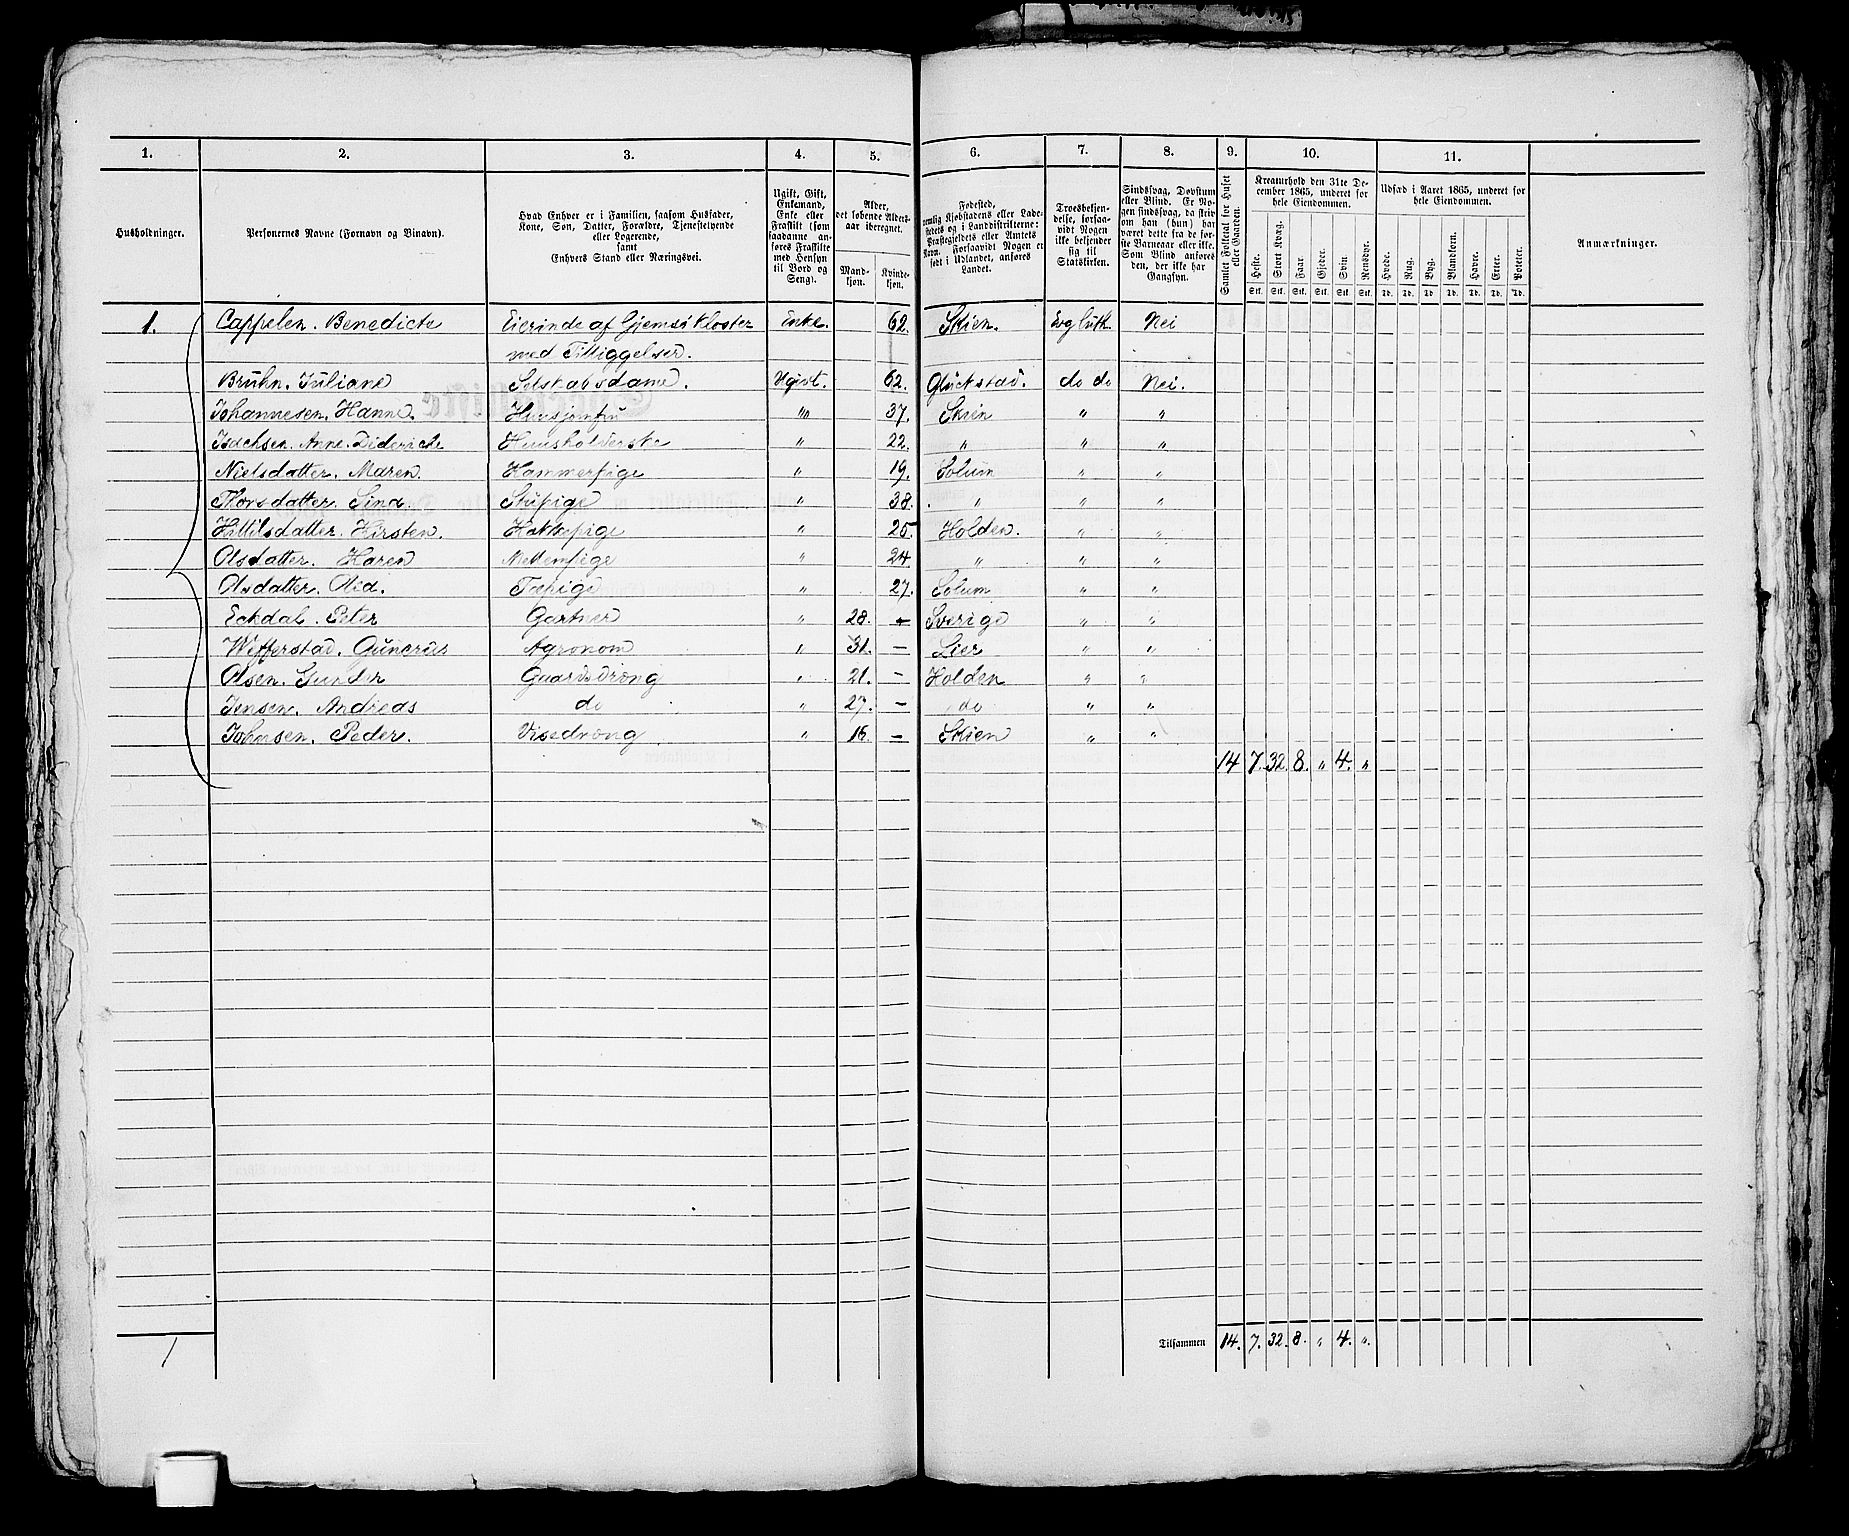 1. 2. 3. 4. 5. 6. 7. 8. 9. 10. 11.
Husholdninger.
Personernes Navne (Fornavn og Binavn).
Hvad Enhver er i Familien, saasom Husfader,
Kone, Søn, Datter, Forældre, Tjenestetyende
eller Logerende,
samt
Enhvers Stand eller Næringsvei.
Ugift, Gift,
Enkemand,
Enke eller
Fraskilt (som
saadanne an-
føres Fraskilte
med Hensyn
til Bord og
Seng).
Alder,
det løbende Alders-
aar iberegnet.
Mand-
kjøn.
Kvinde-
kjøn.
Fødested,
nemlig Kjøbstadens eller Lade-
stedets og i Landdistrikterne:
Præstegjeldets eller Amtets
Navn. Forsaavidt Nogen er
født i Udlandet, anføres
Landet.
Troesbekjen-
delse, forsaa-
vidt Nogen
ikke bekjender
sig til
Statskirken.
Sindssvag, Døvstum
eller Blind. Er No-
gen sindssvag, da skriv
om han (hun) har
været dette fra de før-
ste Barneaar eller ikke.
Som Blind anføres
den, der ikke har
Gangsyn.
Samlet Folketal for Huset
eller Gaarden.
Kreaturhold den 31te De-
cember 1865, underet for
hele Eiendommen.
Heste. Stort Kvæg. Faar. Gjeder. Svin. Rensdyr.
Stk. Stk. Stk. Stk. Stk. Stk.
Udsæd i Aaret 1865, underet for
hele Eiendommen.
Hvede. Rug. Byg. Blandkorn. Havre. Erter. Poteter.
Td. Td. Td. Td. Td. Td. Td.
Anmærkninger.
1. Cappelen. Benedicte Eierinde af Gjemsø Kloster Enke. 62. Skien. Evg luth. Nei
med Tilliggelser.
Bruhn. Juliane Selskabsdame. Ugivt. 62. Glückstad. do do Nei.
Johannesen. Hanne. Huusjomfru " 37. Skien " "
Isachsen. Anne. Didericke Huusholderske " 22. " " "
Nielsdatter. Maren. Kammerpige " 19. Solum " "
Thorsdatter. Sina. Stupige " 38. " " "
Kittilsdatter. Kirsten. Kokkepige " 25. Holden. " "
Olsdatter. Karen Mellempige " 24 " " "
Olsdatter. Olea. " 27. Solum " "
Eckdal. Peter Gartner " 28. - Sverige " "
Wefferstad. Gunerius Agronom " 31. - Lier " "
Olsen. Gunder Gaardsdreng " 21. - Holden " "
Jensen. Andreas do " 27. - do " "
Johnsen. Peder. Visedreng " 16. - Skien " "
14 7. 32. 8. " 4. "
Tilsammen 14. 7. 32. 8. " 4. ".